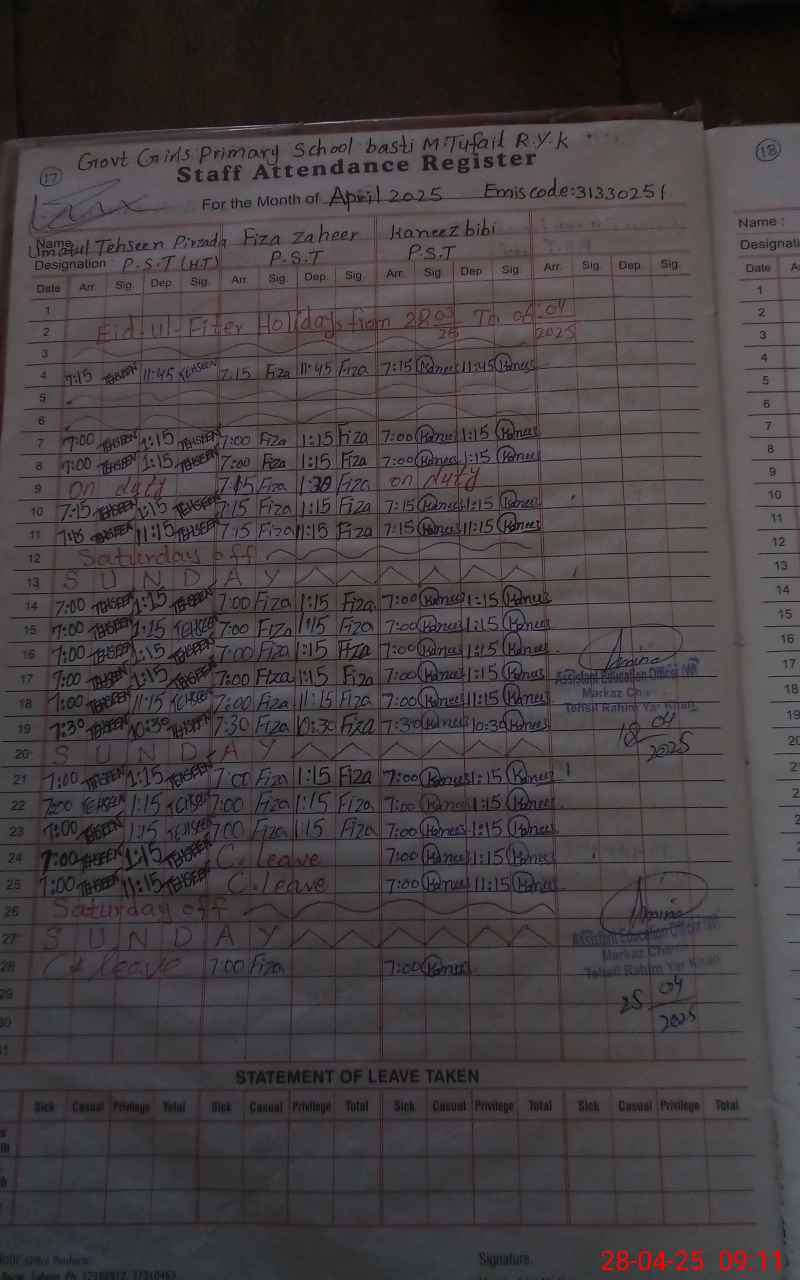 Govt Girls Primary School basti M.Tufail R.Y.K
17
18
Staff Attendance Register
For the Month of April 2025 Emis code:31330251
Name Umatul Tehseen Pirzada Fiza Zaheer Kaneez bibi
Name :
Designation : P.S.T (H.T) P.S.T P.S.T
Date Arr. Sig. Dep. Sig. Arr. Sig. Dep. Sig. Arr. Sig. Dep. Sig. Arr. Sig. Dep. Sig.
1
2 Eid-ul-Fiter Holidays from 28 03 25 To 04 2025
3
4 7:15 TEHSEEN 11:45 TEHSEEN 7:15 Fiza 11:45 Fiza 7:15 Kanees 11:45 Kanees
5
6
7 7:00 TEHSEEN 1:15 TEHSEEN 7:00 Fiza 1:15 Fiza 7:00 Kanees 1:15 Kanees
8 7:00 TEHSEEN 1:15 TEHSEEN 7:00 Fiza 1:15 Fiza 7:00 Kanees 1:15 Kanees
9 on duty 7:15 Fiza 1:30 Fiza on duty
10 7:15 TEHSEEN 1:15 TEHSEEN 7:15 Fiza 1:15 Fiza 7:15 Kanees 1:15 Kanees
11 7:15 TEHSEEN 11:15 TEHSEEN 7:15 Fiza 11:15 Fiza 7:15 Kanees 11:15 Kanees
12 Saturday off
13 S U N D A Y
14 7:00 TEHSEEN 1:15 TEHSEEN 7:00 Fiza 1:15 Fiza 7:00 Kanees 1:15 Kanees
15 7:00 TEHSEEN 1:15 TEHSEEN 7:00 Fiza 1:15 Fiza 7:00 Kanees 1:15 Kanees
16 7:00 TEHSEEN 1:15 TEHSEEN 7:00 Fiza 1:15 Fiza 7:00 Kanees 1:15 Kanees
17 7:00 TEHSEEN 1:15 TEHSEEN 7:00 Fiza 1:15 Fiza 7:00 Kanees 1:15 Kanees
18 7:00 TEHSEEN 11:15 TEHSEEN 7:00 Fiza 11:15 Fiza 7:00 Kanees 11:15 Kanees
19 7:30 TEHSEEN 10:30 TEHSEEN 7:30 Fiza 10:30 Fiza 7:30 Kanees 10:30 Kanees
Amina
Assistant Education Officer (W)
Markaz
Tehsil Rahim Yar Khan
18 04 2025
20 S U N D A Y
21 7:00 TEHSEEN 1:15 TEHSEEN 7:00 Fiza 1:15 Fiza 7:00 Kanees 1:15 Kanees
22 7:00 TEHSEEN 1:15 TEHSEEN 7:00 Fiza 1:15 Fiza 7:00 Kanees 1:15 Kanees
23 7:00 TEHSEEN 1:15 TEHSEEN 7:00 Fiza 1:15 Fiza 7:00 Kanees 1:15 Kanees
24 7:00 TEHSEEN 1:15 TEHSEEN C.leave 7:00 Kanees 1:15 Kanees
25 7:00 TEHSEEN 11:15 TEHSEEN C.leave 7:00 Kanees 11:15 Kanees
26 Saturday off
27 S U N D A Y
28 leave 7:00 Fiza 7:00 Kanees
29
30
31
Amina
Assistant Education Officer (W)
Markaz
Tehsil Rahim Yar Khan
25 04 2025
STATEMENT OF LEAVE TAKEN
Sick Casual Privilege Total Sick Casual Privilege Total Sick Casual Privilege Total Sick Casual Privilege Total
Signature
28-04-25 09:11